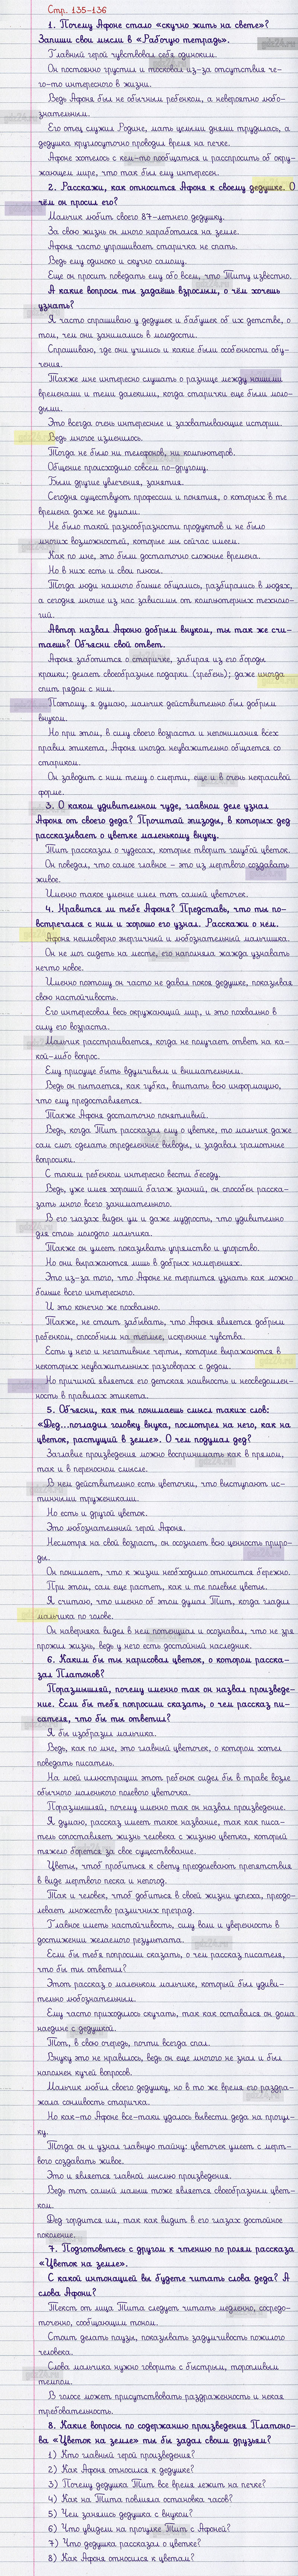 Стр. 135-136
1. Почему Афоне стало «скучно жить на свете»?
Запиши свои мысли в «Рабочую тетрадь».
Главный герой чувствовал себя одиноким.
Он постоянно грустил и тосковал из-за отсутствия че-
го-то интересного в жизни.
Ведь Афоня был не обычным ребенком, а невероятно любо-
знательным.
Его отец служил Родине, мать целыми днями трудилась, а
дедушка круглосуточно проводил время на печке.
Афоне хотелось с кем-то пообщаться и расспросить об окру-
жающем мире, что так был ему интересен.
2. Расскажи, как относится Афоня к своему дедушке. О
чём он просил его?
Мальчик любит своего 87-летнего дедушку.
За свою жизнь он много наработался на земле.
Афоня часто упрашивает старичка не спать.
Ведь ему одиноко и скучно самому.
Еще он просит поведать ему обо всем, что Титу известно.
А какие вопросы ты задаёшь взрослым, о чём хочешь
узнать?
Я часто спрашиваю у дедушек и бабушек об их детстве, о
том, чем они занимались в молодости.
Спрашиваю, где они учились и какие были особенности обу-
чения.
Также мне интересно слушать о разнице между нашими
временами и теми далекими, когда старички еще были моло-
дыми.
Это всегда очень интересные и захватывающие истории.
Ведь многое изменилось.
Тогда не было ни телефонов, ни компьютеров.
Общение происходило совсем по-другому.
Были другие увлечения, занятия.
Сегодня существуют профессии и понятия, о которых в те
времена даже не думали.
Не было такой разнообразности продуктов и не было
многих возможностей, которые мы сейчас имеем.
Как по мне, это были достаточно сложные времена.
Но в них есть и свои плюсы.
Тогда люди намного больше общались, разбирались в людях,
а сегодня многие из нас зависимы от компьютерных техноло-
гий.
Автор назвал Афоню добрым внуком, ты так же счи-
таешь? Объясни свой ответ.
Афоня заботится о старичке, забирая из его бороды
крошки; делает своеобразные подарки (гребень); даже иногда
спит рядом с ним.
Поэтому, я думаю, мальчик действительно был добрым
внуком.
Но при этом, в силу своего возраста и непонимания всех
правил этикета, Афоня иногда неуважительно общается со
стариком.
Он заводит с ним тему о смерти, еще и в очень некрасивой
форме.
3. О каком удивительном чуде, главном деле узнал
Афоня от своего деда? Прочитай эпизоды, в которых дед
рассказывает о цветке маленькому внуку.
Тит рассказал о чудесах, которые творит голубой цветок.
Он поведал, что самое главное - это из мертвого создавать
живое.
Именно такое умение имел тот самый цветочек.
4. Нравится ли тебе Афоня? Представь, что ты по-
встречался с ним и хорошо его узнал. Расскажи о нём.
Афоня неимоверно энергичный и любознательный мальчишка.
Он не мог сидеть на месте, его наполняла жажда узнавать
нечто новое.
Именно поэтому он часто не давал покоя дедушке, показывая
свою настойчивость.
Его интересовал весь окружающий мир, и это похвально в
силу его возраста.
Мальчик расстраивается, когда не получает ответ на ка-
кой-либо вопрос.
Ему присуще быть вдумчивым и внимательным.
Ведь он пытается, как губка, впитать всю информацию,
что ему предоставляется.
Также Афоня достаточно понятливый.
Ведь, когда Тит рассказал ему о цветке, то мальчик даже
сам смог сделать определенные выводы, и задавал грамотные
вопросики.
С таким ребенком интересно вести беседу.
Ведь, уже имея хороший багаж знаний, он способен расска-
зать много всего занимательного.
В его глазах виден ум и даже мудрость, что удивительно
для столь молодого мальчика.
Также он умеет показывать упрямство и упорство.
Но они выражаются лишь в добрых намерениях.
Это из-за того, что Афоне не терпится узнать как можно
больше всего интересного.
И это конечно же похвально.
Также, не стоит забывать, что Афоня является добрым
ребенком, способным на теплые, искренние чувства.
Есть у него и негативные черты, которые выражаются в
некоторых неуважительных разговорах с дедом.
Но причиной является его детская наивность и неосведомлен-
ность в правилах этикета.
5. Объясни, как ты понимаешь смысл таких слов:
«Дед...погладил головку внука, посмотрел на него, как на
цветок, растущий в земле». О чем подумал дед?
Заглавие произведения можно воспринимать как в прямом,
так и в переносном смысле.
В нем действительно есть цветочки, что выступают ис-
тинными тружениками.
Но есть и другой цветок.
Это любознательный герой Афоня.
Несмотря на свой возраст, он осознает всю ценность приро-
ды.
Он понимает, что к жизни необходимо относится бережно.
При этом, сам еще растет, как и те полевые цветы.
Я считаю, что именно об этом думал Тит, когда гладил
мальчика по голове.
Он наверняка видел в нем потенциал и осознавал, что не зря
прожил жизнь, ведь у него есть достойный наследник.
6. Каким бы ты нарисовал цветок, о котором расска-
зал Платонов?
Поразмышляй, почему именно так он назвал произведе-
ние. Если бы тебя попросили сказать, о чем рассказ пи-
сателя, что бы ты ответил?
Я бы изобразил мальчика.
Ведь, как по мне, это главный цветочек, о котором хотел
поведать писатель.
На моей иллюстрации этот ребенок сидел бы в траве возле
обычного маленького полевого цветочка.
Поразмышляй, почему именно так он назвал произведение.
Я думаю, рассказ имеет такое название, так как писа-
тель сопоставляет жизнь человека с жизнью цветка, который
тяжело борется за свое существование.
Цветы, чтоб пробиться к свету преодолевают препятствия
в виде мертвого песка и непогод.
Так и человек, чтоб добиться в своей жизни успеха, преодо-
левает множество различных преград.
Главное иметь настойчивость, силу воли и уверенность в
достижении желаемого результата.
Если бы тебя попросили сказать, о чем рассказ писателя,
что бы ты ответил?
Этот рассказ о маленьком мальчике, который был удиви-
тельно любознательным.
Ему часто приходилось скучать, так как оставался он дома
наедине с дедушкой.
Тот, в свою очередь, почти всегда спал.
Внуку это не нравилось, ведь он еще многого не знал и был
наполнен кучей вопросов.
Мальчик любил своего дедушку, но в то же время его раздра-
жала сонливость старичка.
Но как-то Афоне все-таки удалось вывести деда на прогул-
ку.
Тогда он и узнал главную тайну: цветочек умеет с мерт-
вого создавать живое.
Это и является главной мыслью произведения.
Ведь тот самый малыш тоже является своеобразным цвет-
ком.
Дед гордится им, так как видит в его глазах достойное
поколение.
7. Подготовьтесь с другом к чтению по ролям рассказа
«Цветок на земле».
С какой интонацией вы будете читать слова деда? А
слова Афони?
Текст от лица Тита следует читать медленно, сосредо-
точенно, сообщающим тоном.
Стоит делать паузы, показывать задумчивость пожилого
человека.
Слова мальчика нужно говорить с быстрым, торопливым
темпом.
В голосе может присутствовать раздраженность и некая
требовательность.
8. Какие вопросы по содержанию произведения Платоно-
ва «Цветок на земле» ты бы задал своим друзьям?
1) Кто главный герой произведения?
2) Как Афоня относился к дедушке?
3) Почему дедушка Тит все время лежит на печке?
4) Как на Тита повлияла остановка часов?
5) Чем занялись дедушка с внуком?
6) Что увидели на прогулке Тит с Афоней?
7) Что дедушка рассказал о цветке?
8) Как Афоня относился к цветам?